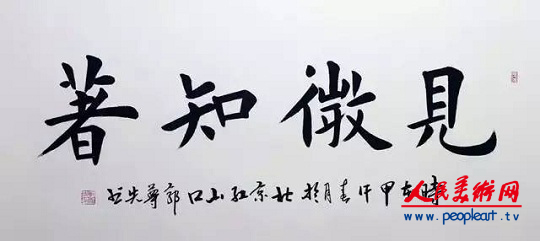 見微知著
時在甲午春月於北京红山口郭尊先书
人民美術网
www.peopleart.tv